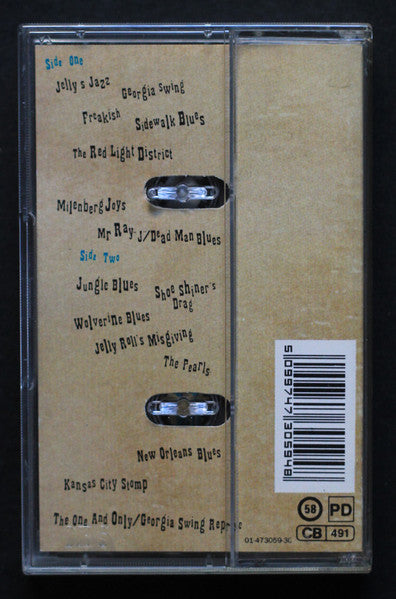 Side One
Jelly's Jazz
Georgia Swing
Freakish
Sidewalk Blues
The Red Light District
Milenberg Joys
Mr Ray-J/Dead Man Blues
Side Two
Jungle Blues
Shoe Shiner's
Drag
Wolverine Blues
Jelly Roll's Misgiving
The Pearls
New Orleans Blues
Kansas City Stomp
The One And Only/Georgia Swing
5099747305948
58 PD
CB 491
01-473059-30